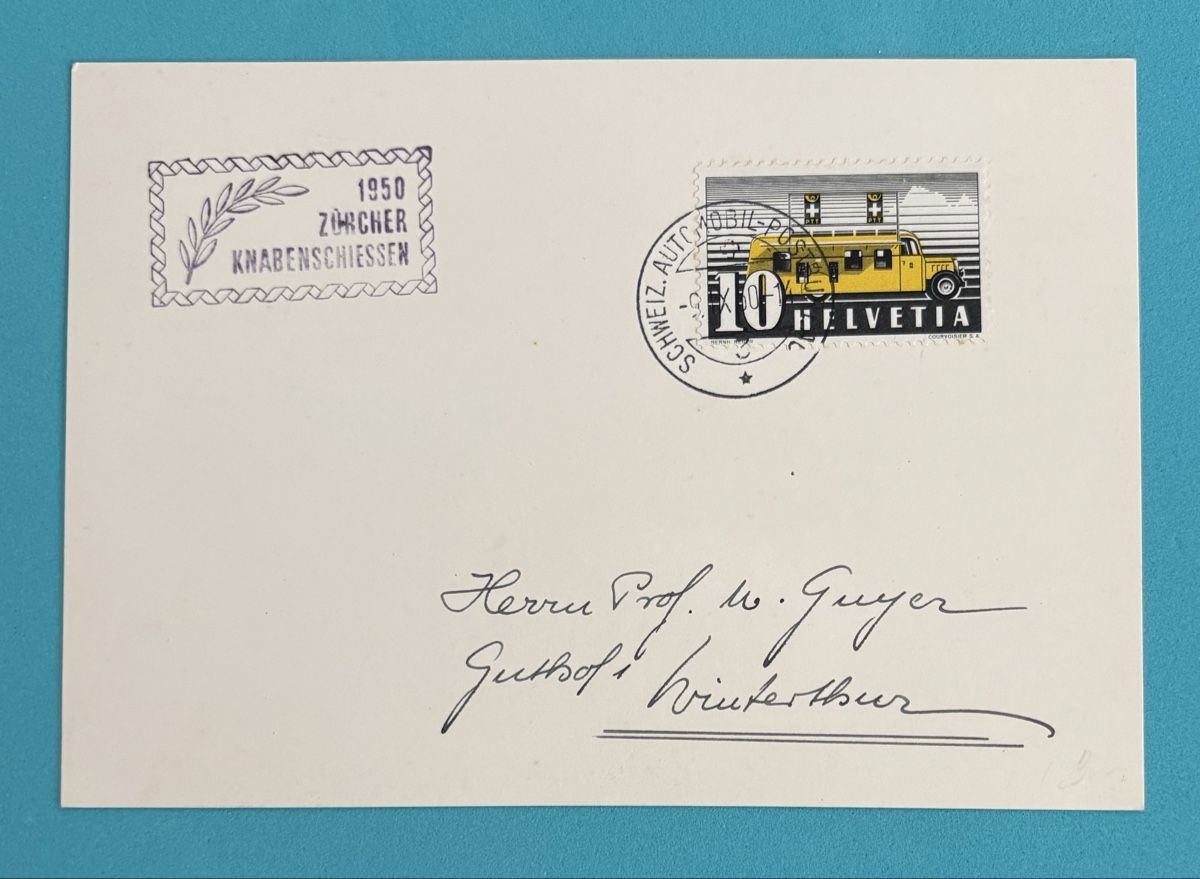 1950
ZÜRCHER
KNABENSCHIESSEN
PTT PTT
SCHWEIZ. AUTOMOBIL-POST
10 HELVETIA
COURVOISIER S.A.
Herrn Prof. W. Guyer
Winterthur